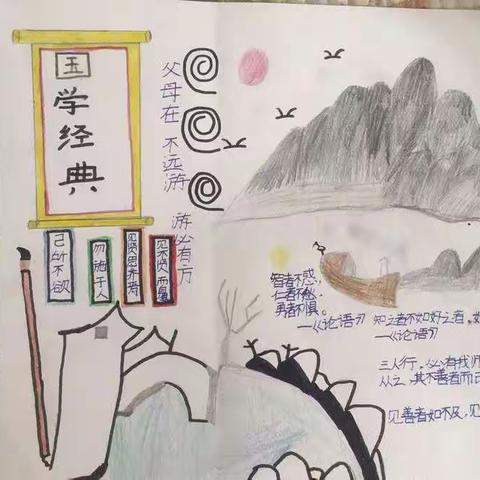 国
学
经
典
父母在 不远游
游必有方
己所不欲
勿施于人
见贤思齐焉
见不贤而
智者不惑,
仁者不
勇者不惧。
—《论语》
知之者不如好之者,
—《论语》
三人行,必有我师
从之,其不善者而
见善者如不及,见